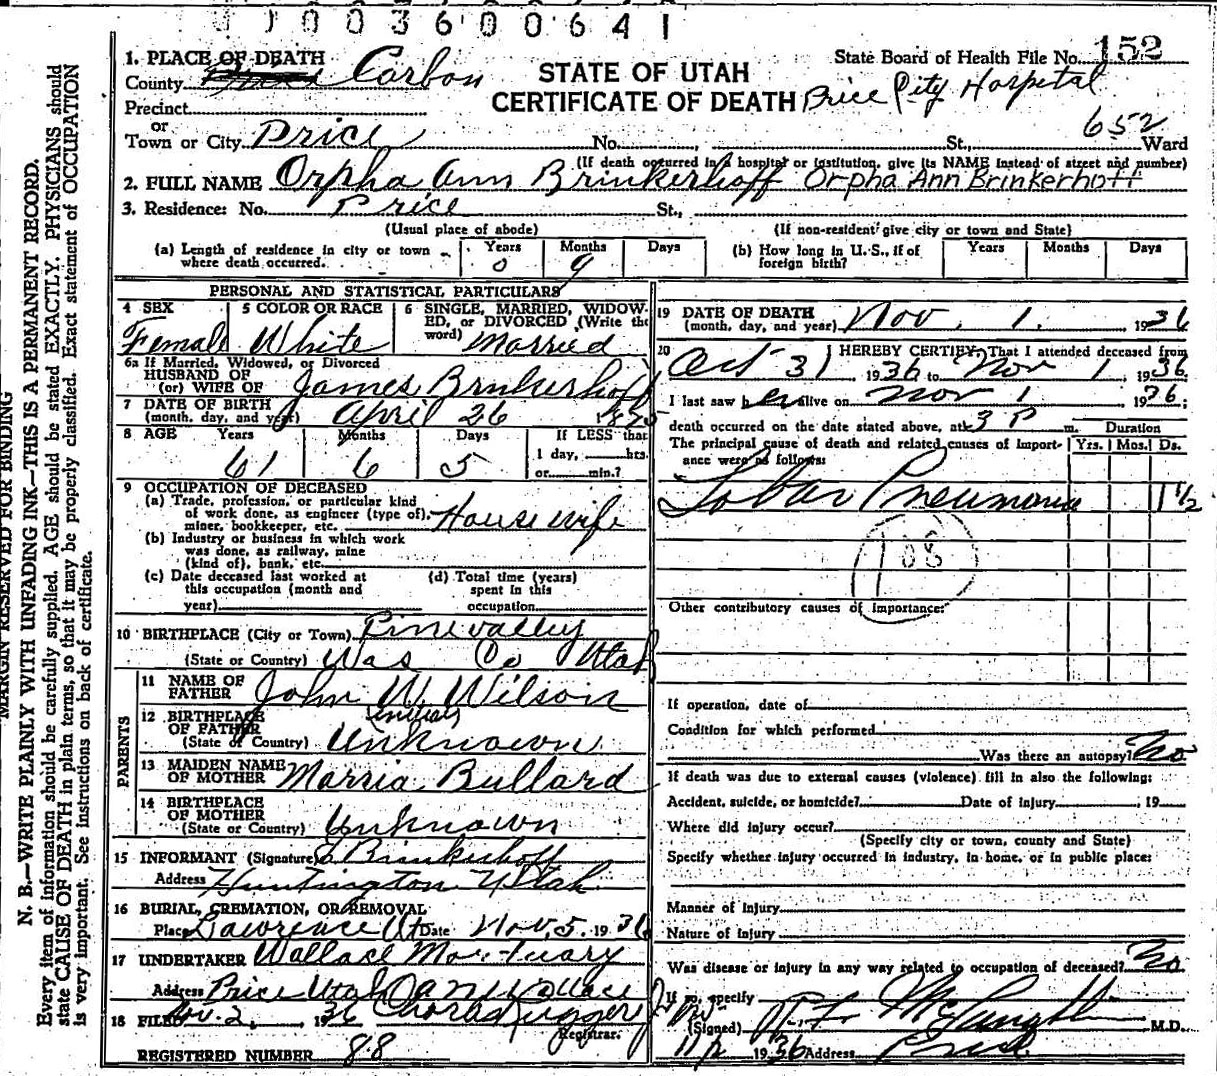 1003600641
1. PLACE OF DEATH
County Carbon
Precinct
or
Town or City Price No. , St., Ward
STATE OF UTAH
CERTIFICATE OF DEATH
State Board of Health File No. 152
Price City Hospital
652
(If death occurred in a hospital or institution, give its NAME instead of street and number)
2. FULL NAME Orpha Ann Brinkerhoff Orpha Ann Brinkerhoff
3. Residence: No. Price St.,
(Usual place of abode) (If non-resident give city or town and State)
(a) Length of residence in city or town where death occurred. Years 0 Months 9 Days
(b) How long in U.S., if of foreign birth? Years Months Days
PERSONAL AND STATISTICAL PARTICULARS
4 SEX Female
5 COLOR OR RACE White
6 SINGLE, MARRIED, WIDOWED, or DIVORCED (Write the word) Married
6a If Married, Widowed, or Divorced
HUSBAND OF
(or) WIFE OF James Brinkerhoff
7 DATE OF BIRTH
(month, day, and year) April 26 1875
8 AGE Years 61 Months 6 Days 5 If LESS than 1 day, hrs. or min.?
9 OCCUPATION OF DECEASED
(a) Trade, profession, or particular kind
of work done, as engineer (type of),
miner, bookkeeper, etc. House wife
(b) Industry or business in which work
was done, as railway, mine
(kind of), bank, etc.
(c) Date deceased last worked at
this occupation (month and
year)
(d) Total time (years)
spent in this
occupation
10 BIRTHPLACE (City or Town) Pinevalley
(State or Country) Was Co Utah
PARENTS
11 NAME OF FATHER John W. Wilson
initials
12 BIRTHPLACE OF FATHER
(State or Country) Unknown
13 MAIDEN NAME OF MOTHER Marria Bullard
14 BIRTHPLACE OF MOTHER
(State or Country) Unknown
15 INFORMANT (Signature) Brinkerhoff
Address Huntington Utah
16 BURIAL, CREMATION, OR REMOVAL
Place Lawrence Ut Date Nov. 5. 1936
17 UNDERTAKER Wallace Mortuary
Address Price Utah Wallace
18 FILED Nov. 2, 1936
Registrar.
REGISTERED NUMBER 88
19 DATE OF DEATH
(month, day, and year) Nov. 1. 1936
20 I HEREBY CERTIFY, That I attended deceased from
Oct 31, 1936 to Nov 1 1936
I last saw her alive on Nov 1 1936;
death occurred on the date stated above, at 3 P m. Duration
The principal cause of death and related causes of importance were as follows: Yrs. Mos. Ds.
Lobar Pneumonia 1 1/2
108
Other contributory causes of importance:
If operation, date of
Condition for which performed
Was there an autopsy? No
If death was due to external causes (violence) fill in also the following:
Accident, suicide, or homicide? Date of injury , 19
Where did injury occur?
(Specify city or town, county and State)
Specify whether injury occurred in industry, in home, or in public place:
Manner of Injury
Nature of injury
Was disease or injury in any way related to occupation of deceased? No
If so, specify
(Signed) M.D.
11/2 1936 Address Price
MARGIN RESERVED FOR BINDING
N. B.—WRITE PLAINLY WITH UNFADING INK—THIS IS A PERMANENT RECORD.
Every item of information should be carefully supplied. AGE should be stated EXACTLY. PHYSICIANS should
state CAUSE OF DEATH in plain terms, so that it may be properly classified. Exact statement of OCCUPATION
is very important. See instructions on back of certificate.